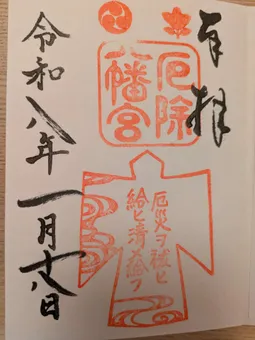 奉拝
厄除
八幡宮
厄災ヲ祓ヒ
給ヒ清メ給フ
令和八年一月十八日